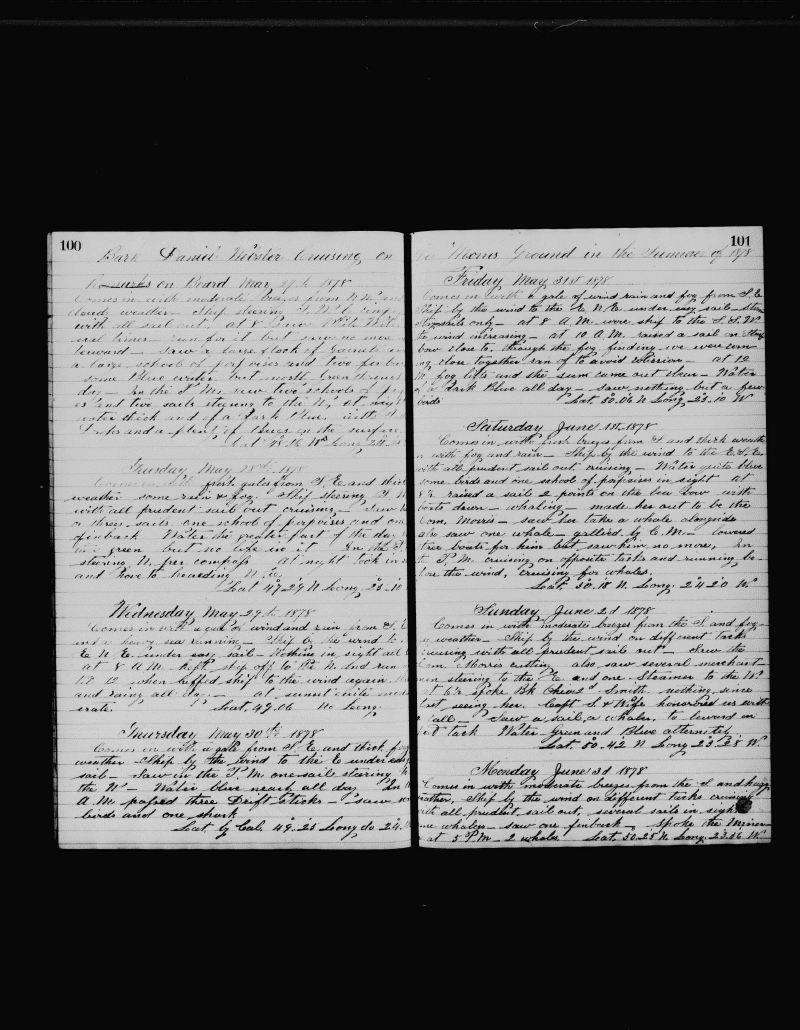 100
Bark Daniel Webster Cruising on
Remarks on Board May 27th 1878
Comes in with moderate breezes from N.W. and
cloud weather Ship steering
with all sail out, at 8
eral times run for it but saw no more
leeward - saw a large flock of Gannets
a large schools of porpoises and five
some Blue water but mostly Green
day - In the P.M. saw two schools of
es and five sails steering to the N, at night
water thick and of a Dark Blue with
and a plenty of on the surface
Lat 48.16 N Long 24
Tuesday May 28th 1878
Comes in with fresh gales from S. E. and thick
weather some rain & fog. Ship steering
with all prudent sail out cruising - Saw
or three sails one school of porpoises and one
finback Water the greater part of the day
green but no life in it In the P.
steering N. per compass at night took in
and hove to heading N. E.
Lat 47.29 N Long 25.10
Wednesday May 29th 1878
Comes in with a gale of wind and rain from S. E
and a heavy sea running - Ship by the wind to
E N. E. under easy sail - Nothing in sight all
at 8 A.M. kept ship off to the N. and run
till 12 when luffed ship to the wind again
and rainy all day - at sunset quite mod
erate. Lat, 49.06 No Long.
Thursday May 30th 1878
Comes in with a gale from S. E. and thick fog
weather Ship by the wind to the E under easy
sail - Saw in the P.M. one sail steering to
the N - Water blue nearly all day In
A.M. passed three Drift Sticks - saw
birds and one shark
Lat. by Cal. 49.25 Long do 24.
101
the Morris Ground in the Summer of 1878
Friday May 31st 1878
Comes in with a gale of wind rain and fog from S.E
Ship by the wind to the E N.E. under easy sail
Staysails only - at 8 A.M. wore ship to the S.S.W.
wind increasing - at 10 A.M. raised a sail on
bow close to, through the fog finding we were com
ing close together ran of to avoid collision - at 12
M. fog lits and the sun came out clear - Water
a Dark Blue all day - saw nothing but a few
birds Lat. 50.06 N Long, 23.10 W
Saturday June 1st 1878
Comes in with fresh breezes from S and thick weath
with fog and rain - Ship by the wind to the E.S.E.
with all prudent sail out cruising - Water quite blue
some birds and one school of porpoises in sight at
8½ raised a sail 2 points on the lee bow with
boats down - whaling - made her out to be the
Com. Morris - saw her take a whale alongside
also saw one whale gallied by C.M. - lowered
three boats for him but saw him no more, In
the P.M. cruising on opposite tacks and running be-
fore the wind, cruising for whales.
Lat, 50.18 N. Long. 24.20 W.
Sunday June 2d 1878
Comes in with moderate breezes from the S. and fog-
weather - Ship by the wind on different tacks
cruising with all prudent sail out - Saw the
Com. Morris cutting also saw several merchant
men steering to the E and one Steamer to the W.
at 6½ spoke Bk Smith nothing since
last seeing her. Capt S & Wife honored us with
a call - Saw a sail, a whaler, to leward on
tack Water Green and Blue alternitly.
Lat. 50.42 N Long 23.28 W.
Monday June 3d 1878
Comes in with moderate breezes from the S and hazy
weather, Ship by the wind on different tacks cruising
with all prudent sail out, several sails in sight
one whaler - saw one finback. Spoke the
at 5 P.M. 2 whales Lat. 50.25 N. Long. 23.56 W.